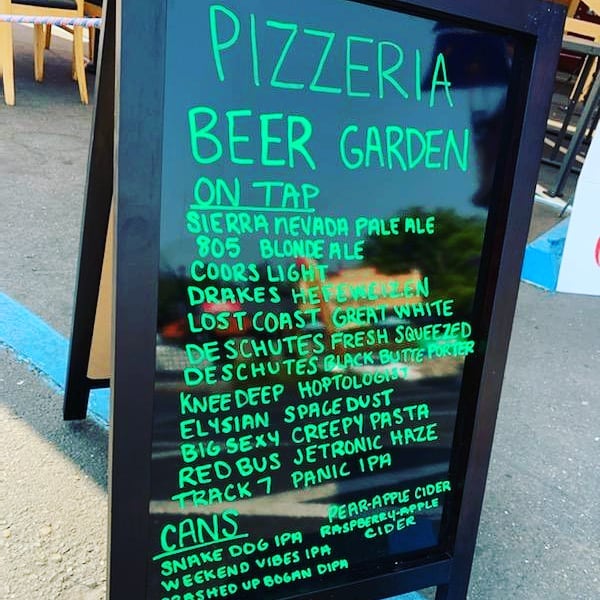 PIZZERIA
BEER GARDEN
ON TAP
SIERRA NEVADA PALE ALE
805 BLONDE ALE
COORS LIGHT
DRAKES HEFEWEIZEN
LOST COAST GREAT WHITE
DESCHUTES FRESH SQUEEZED
DESCHUTES BLACK BUTTE PORTER
KNEE DEEP HOPTOLOGIST
ELYSIAN SPACE DUST
BIG SEXY CREEPY PASTA
RED BUS JETRONIC HAZE
TRACK 7 PANIC IPA
CANS
SNAKE DOG IPA
WEEKEND VIBES IPA
CRASHED UP BOGAN DIPA
PEAR-APPLE CIDER
RASPBERRY-APPLE
CIDER